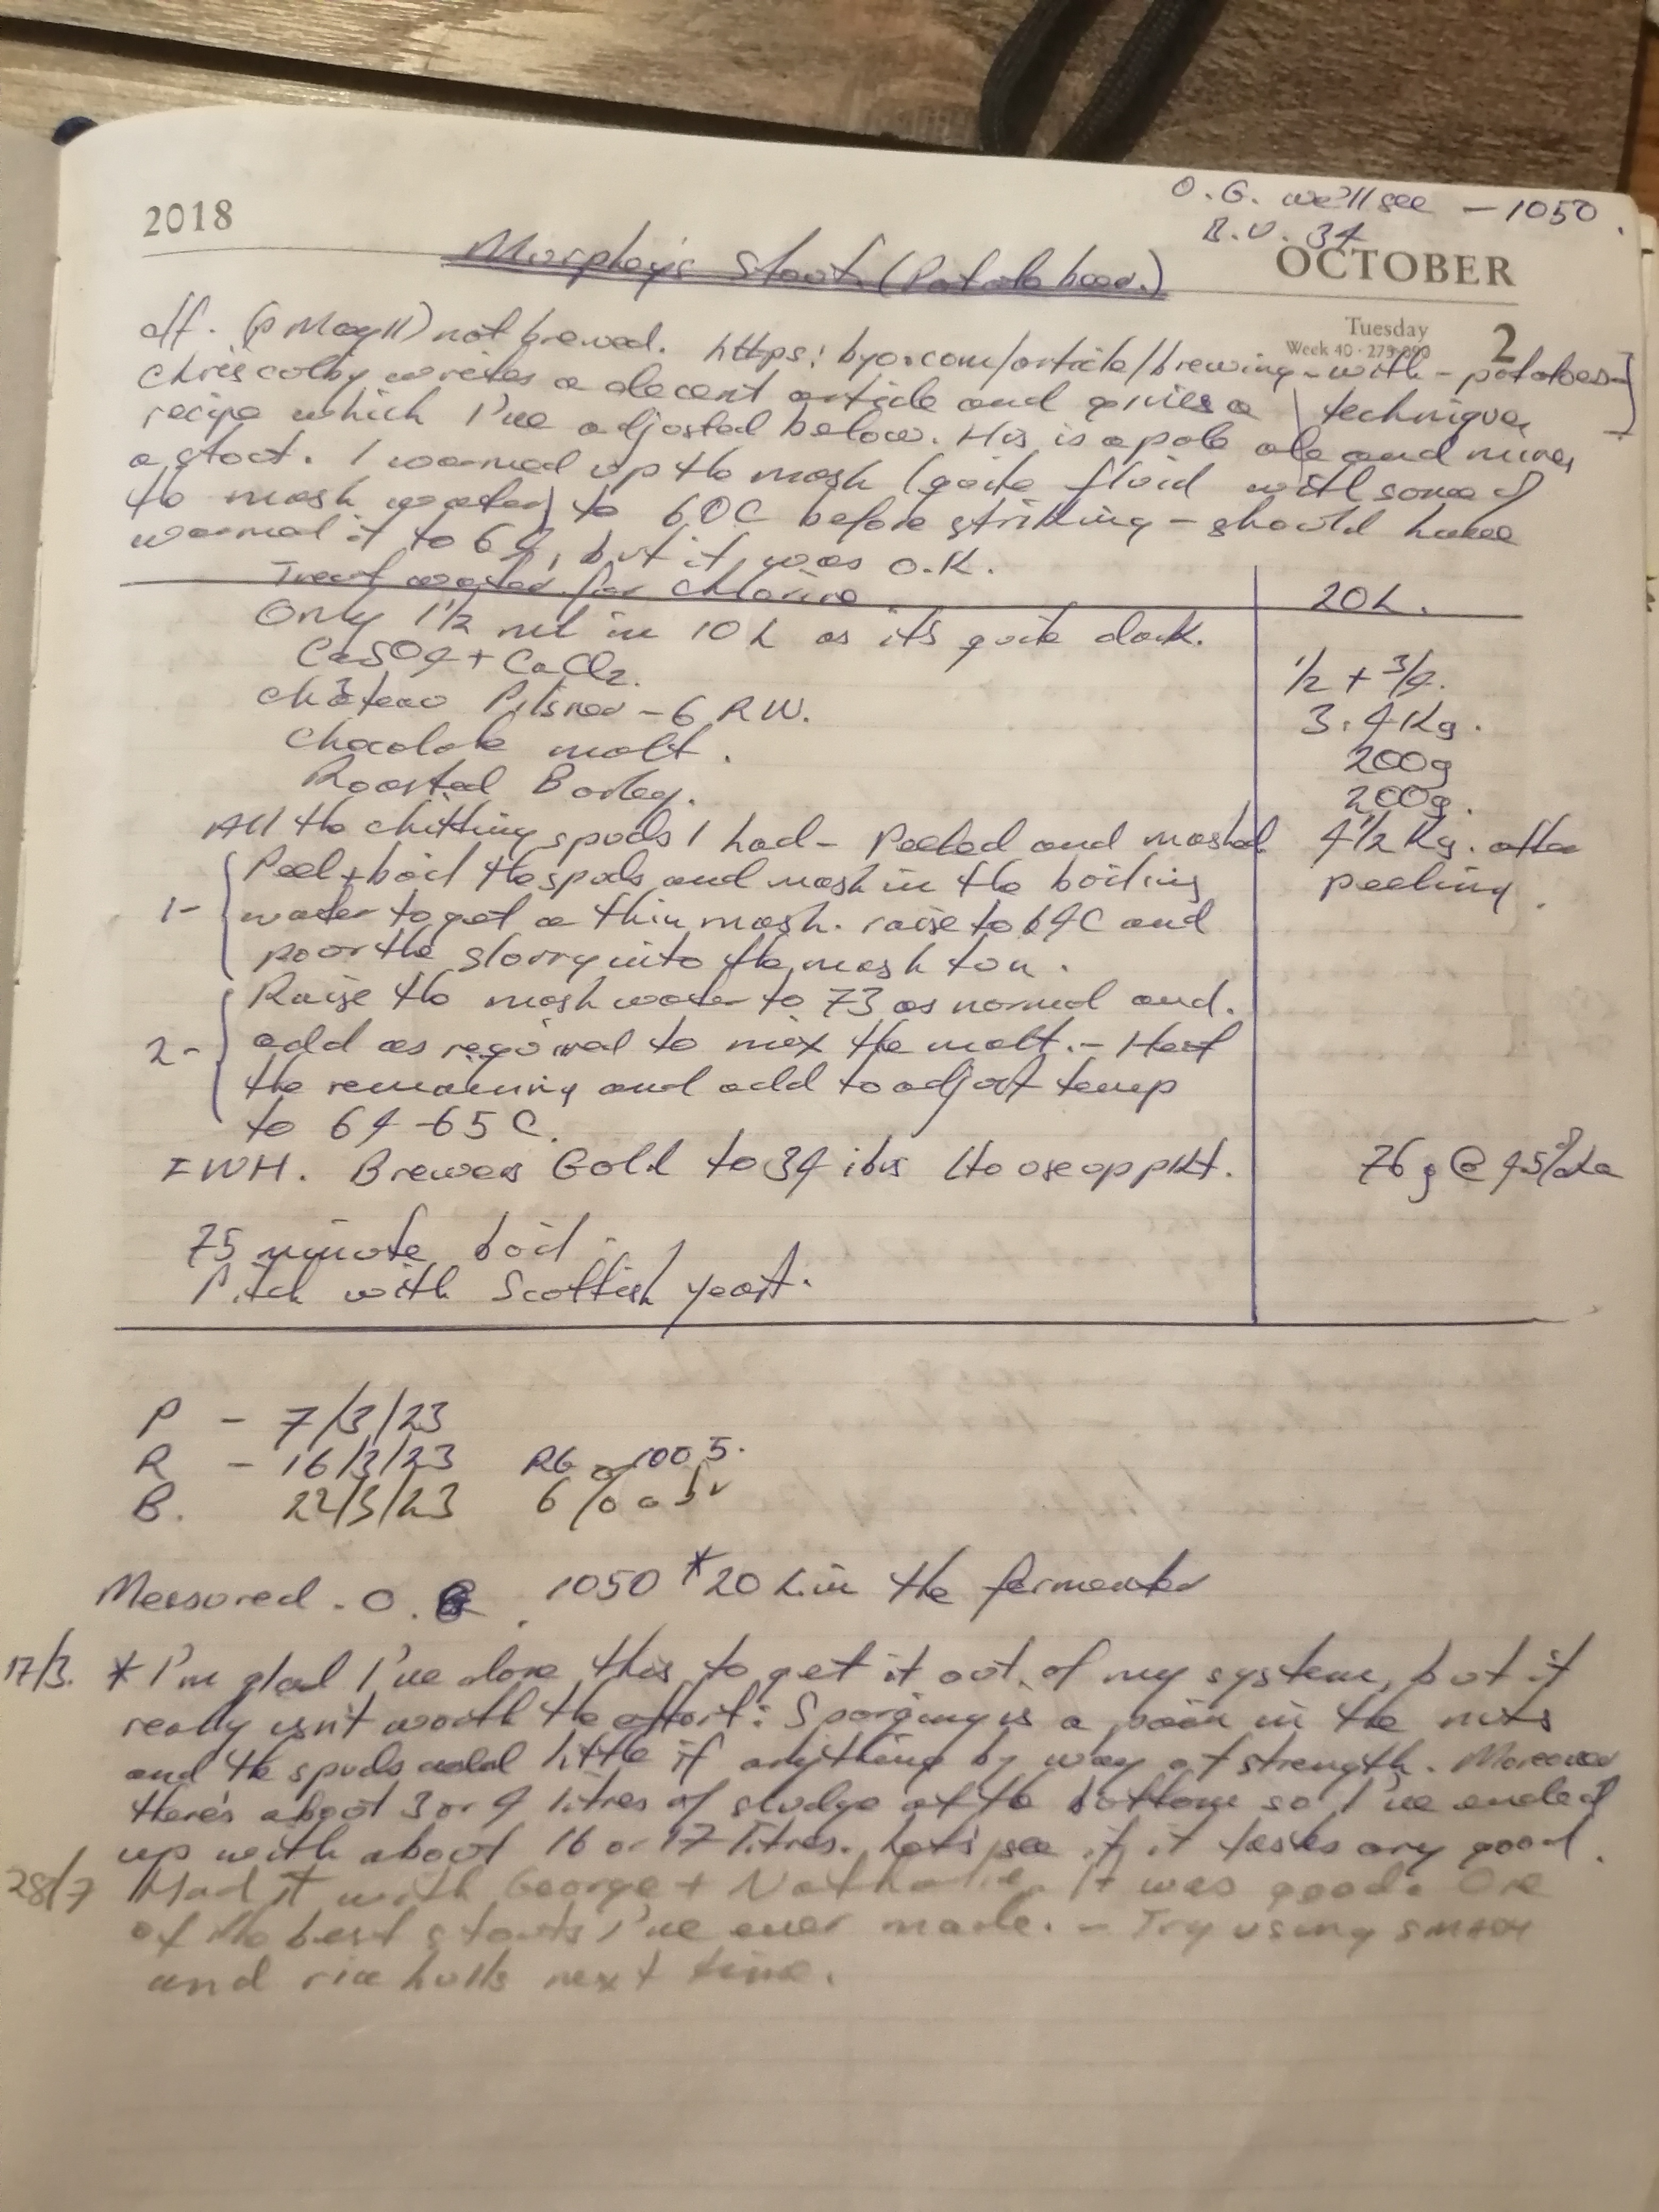 O.G. we'll see — 1050.
B.U. 34
2018
OCTOBER
Murphey's Stout (Potato beer.)
Tuesday
2
Week 40 · 275-090
aff. (p May 11) not brewed. https: byo.com/article/brewing-with-potatoes-
technique
Chris Colby writes a decent article and gives a
recipe which I've adjusted below. His is a pale ale and mine,
a stout. I warmed up the mash (quite fluid with some of
the mash water) to 60C before striking - should have
warmed it to 64, but it was O.K.
Treat water for chlorine
20L.
Only 1½ ml in 10L as it's quite dark.
CaSO4 + CaCl2.
½ + ¾.
Château Pilsner - 6 RW.
3.4Kg.
Chocolate malt.
200g
Roasted Barley.
200g.
All the chitting spuds I had - Peeled and mashed
4½ Kg. after
peeling.
1- Peel + boil the spuds and mash in the boiling
water to get a thin mash. raise to 64C and
pour the slurry into the mash tun.
2- Raise the mash water to 73 as normal and.
add as required to mix the malt. - Heat
the remaining and add to adjust temp
to 64-65C.
FWH. Brewers Gold to 34 ibus (to use up pkt.
76g @ 4.5%
75 minute boil.
Pitch with Scottish yeast.
P - 7/3/23
R - 16/3/23 RG 1005.
B. 22/3/23 6% abv
Measured. O.G. 1050 * 20L in the fermenter
17/3. * I'm glad I've done this to get it out of my system, but it
really isn't worth the effort: Sparging is a pain in the nuts
and the spuds add little if anything by way of strength. Moreover
there's about 3 or 4 litres of sludge at the bottom so I've ended
up with about 16 or 17 litres. Let's see if it tastes any good.
28/7 Had it with George + Nathalie. It was good. One
of the best stouts I've ever made. - Try using smash
and rice hulls next time.